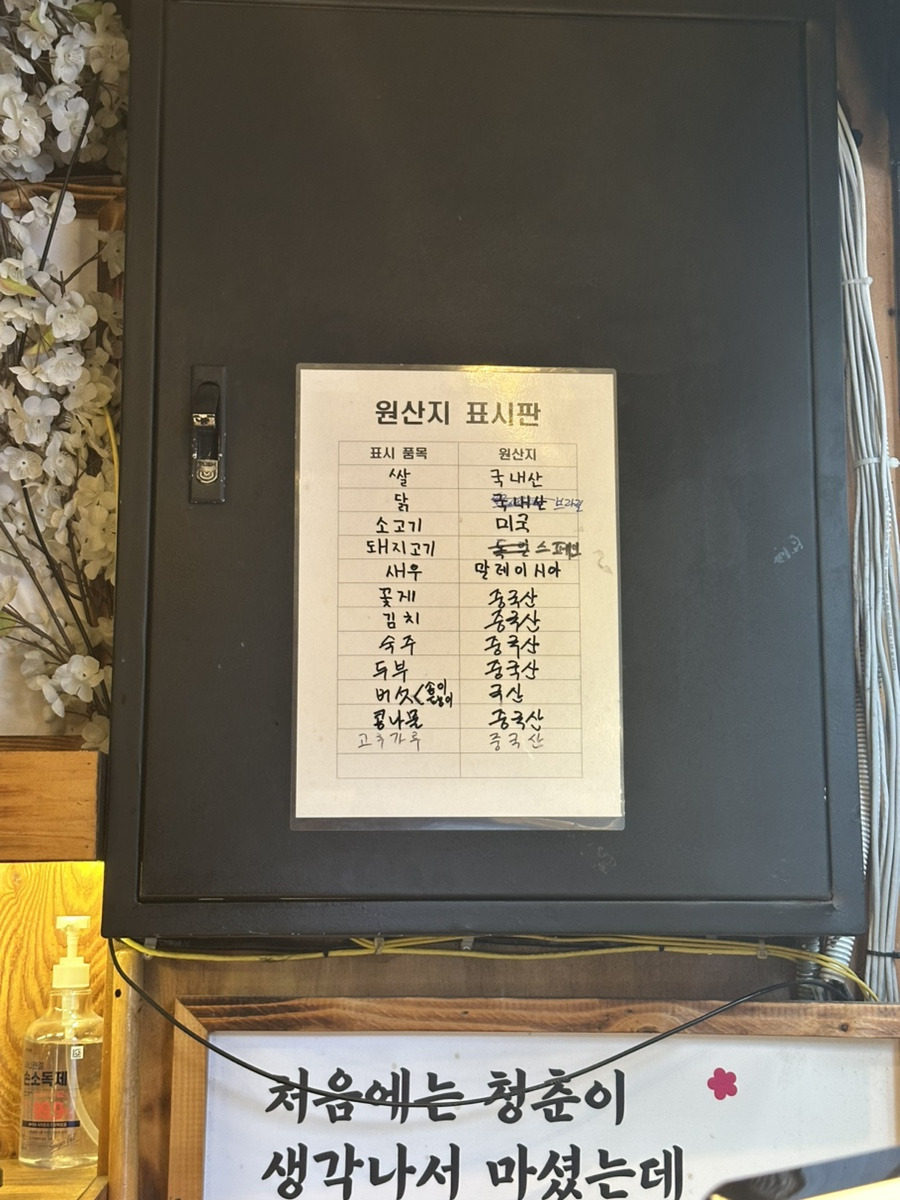 원산지 표시판
표시 품목 원산지
쌀 국내산
닭 국내산 브라질
소고기 미국
돼지고기 독일 스페인
새우 말레이시아
꽃게 중국산
김치 중국산
숙주 중국산
두부 중국산
버섯 국산
콩나물 중국산
고추가루 중국산
손소독제
처음에는 청춘이
생각나서 마셨는데